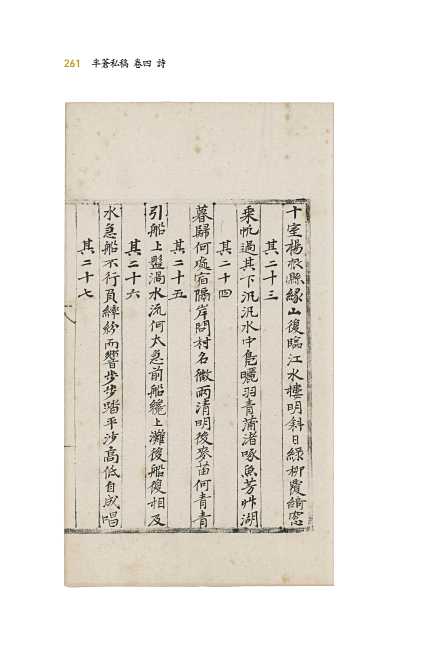 261 半蒼私稿 卷四 詩
十室楊根縣緣山復臨江水樓明斜日綠柳覆綺窓
其二十三
乘帆過其下汎汎水中鳧曬羽青蒲渚啄魚芳艸湖
其二十四
暮歸何處宿隔岸問村名微雨清明後麥苗何青青
其二十五
引船上盤渦水流何太急前船纔上灘後船復相及
其二十六
水急船不行負縴紛而響步步踏平沙高低自成唱
其二十七